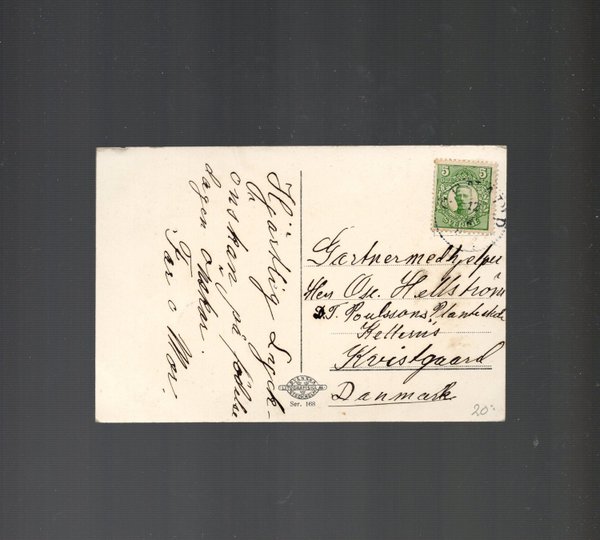 Hjärtlig Lyck-
önskan på födelse
dagen önskar.
Far o Mor.
5 5
SVERIGE
Gartnermedhjelper
Herr Osc. Hellström
D.T. Poulssons Planteskole
Kelleris
Kvistgaard
Danmark
SVENSKA
STOCKHOLM
Ser. 168
20:-